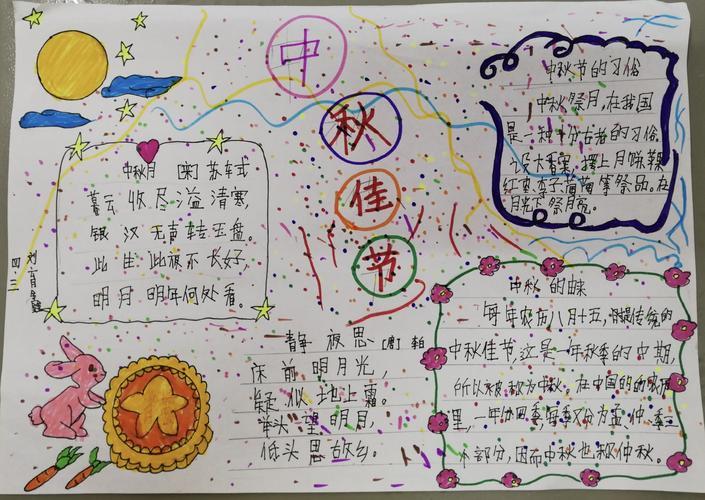 中
秋
佳
节
中秋月 [宋] 苏轼
暮云收尽溢清寒，
银汉无声转玉盘。
此生此夜不长好，
明月明年何处看。
四三
静夜思 [唐] 李白
床前明月光，
疑似地上霜。
举头望明月，
低头思故乡。
中秋节的习俗
中秋祭月，在我国
是一种十分古老的习俗。
设大香案，摆上月饼
红枣李子葡萄等祭品。在
月光下祭月
中秋的由来
每年农历八月十五，传统的
中秋佳节。这是一年秋季的中期，
所以被称为中秋。在中国的的
里，一年分四季，每季又分为孟、仲、季三
个部分，因而中秋也称仲秋。